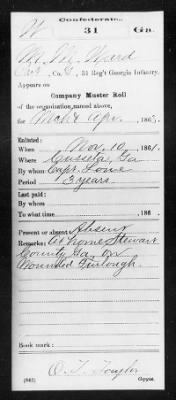 Confederate.
W 31 Ga.
Ward
Co. , 31 Reg't Georgia Infantry.
Appears on
Company Muster Roll
of the organization named above,
for Mch & Apr , 186 .
Enlisted:
When Nov. 10 , 1861.
Where Cusseta, Ga
By whom Capt. Lowe
Period 3 years.
Last paid:
By whom
To what time , 186 .
Present or absent Absent
Remarks: at home Stewart
County Ga. on
Wounded Furlough
Book mark:
(642) Copyist.